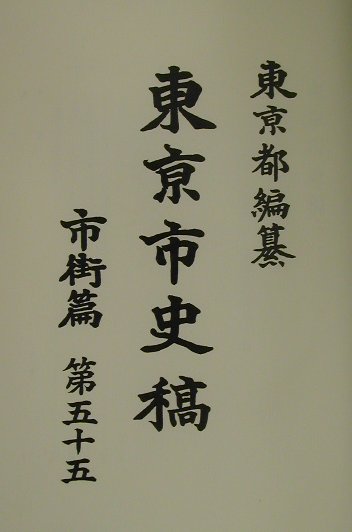 東亰都編纂
東亰市史稿
市街篇 第五十五